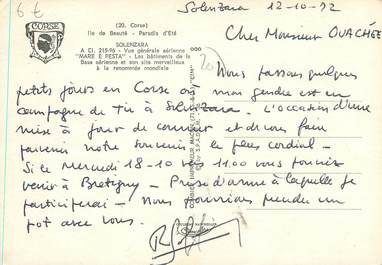 6 €
CORSE
(20. Corse)
Ile de Beauté - Paradis d'Eté
SOLENZARA
A Cl. 215-96 - Vue générale aérienne
"MARE E FESTA" - Les bâtiments de la
Base aérienne et son site merveilleux
à la renommée mondiale
Solenzara 12-10-72
Cher Monsieur OUACHÉE
20
Nous passons quelques
petits jours en Corse où mon gendre est en
campagne de Tir à Solenzara. L'occasion d'une
mise à jour de courrier et de vous faire
parvenir notre souvenir le plus cordial -
Si le Mercredi 18-10 vers 11.00 vous pouviez
venir à Bretigny - Prise d'arme à laquelle je
participerai - Nous pourrions prendre un
pot avec vous.